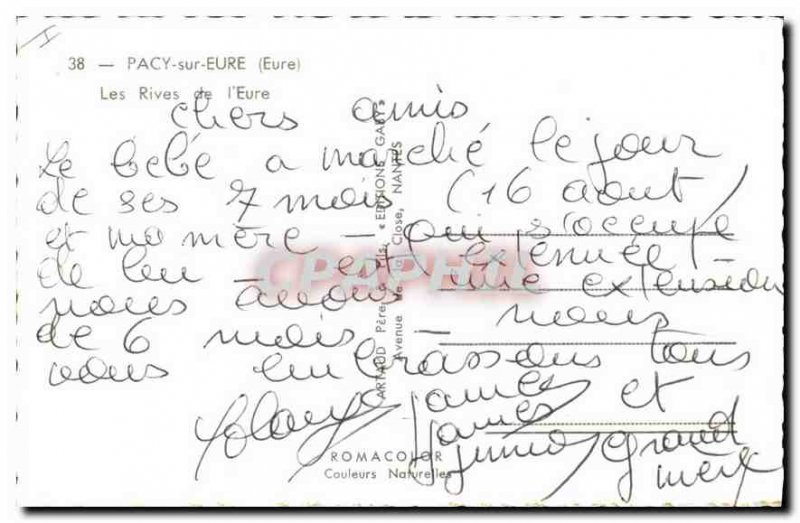 38 — PACY-sur-EURE (Eure)
Les Rives de l'Eure
chers amis
Le bébé a marché le jour
de ses 7 mois (16 aout
et ma mère - qui s'occupe
de lui - est exténuée!
nous avons une extension
de 6 mois - nous
vous embrassons tous
James et
James
Junior grand
mère
ARTAUD Père "EDITIONS GABY"
Avenue de la Close, NANTES
CPAPHIL
ROMACOLOR
Couleurs Naturelles